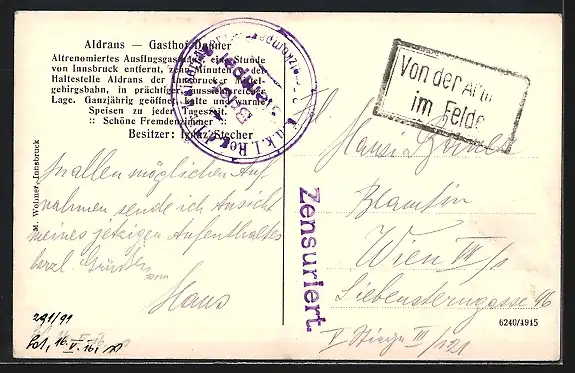 Aldrans — Gasthof Daßner
Altrenomiertes Ausflugsgasthaus eine Stunde
von Innsbruck entfernt, zehn Minuten der
Haltestelle Aldrans der Innsbrucker Mittel-
gebirgsbahn, in prächtiger, aussichtsreicher
Lage. Ganzjährig geöffnet, kalte und warme
Speisen zu jeder Tageszeit.
:: Schöne Fremdenzimmer ::
Besitzer: Ignaz Stecher
M. Wolner, Innsbruck
In allen möglichen Auf
nahmen sende ich Ansicht
meines jetzigen Aufenthaltes
herzl. Grüße
von
Hans
291/91
16. V. 16.
Zensuriert.
Von der Arm
im Felde
Hansi
Beamtin
Wien VII/1
Liebensterngasse 46
V Stiege III/121
6240/4915